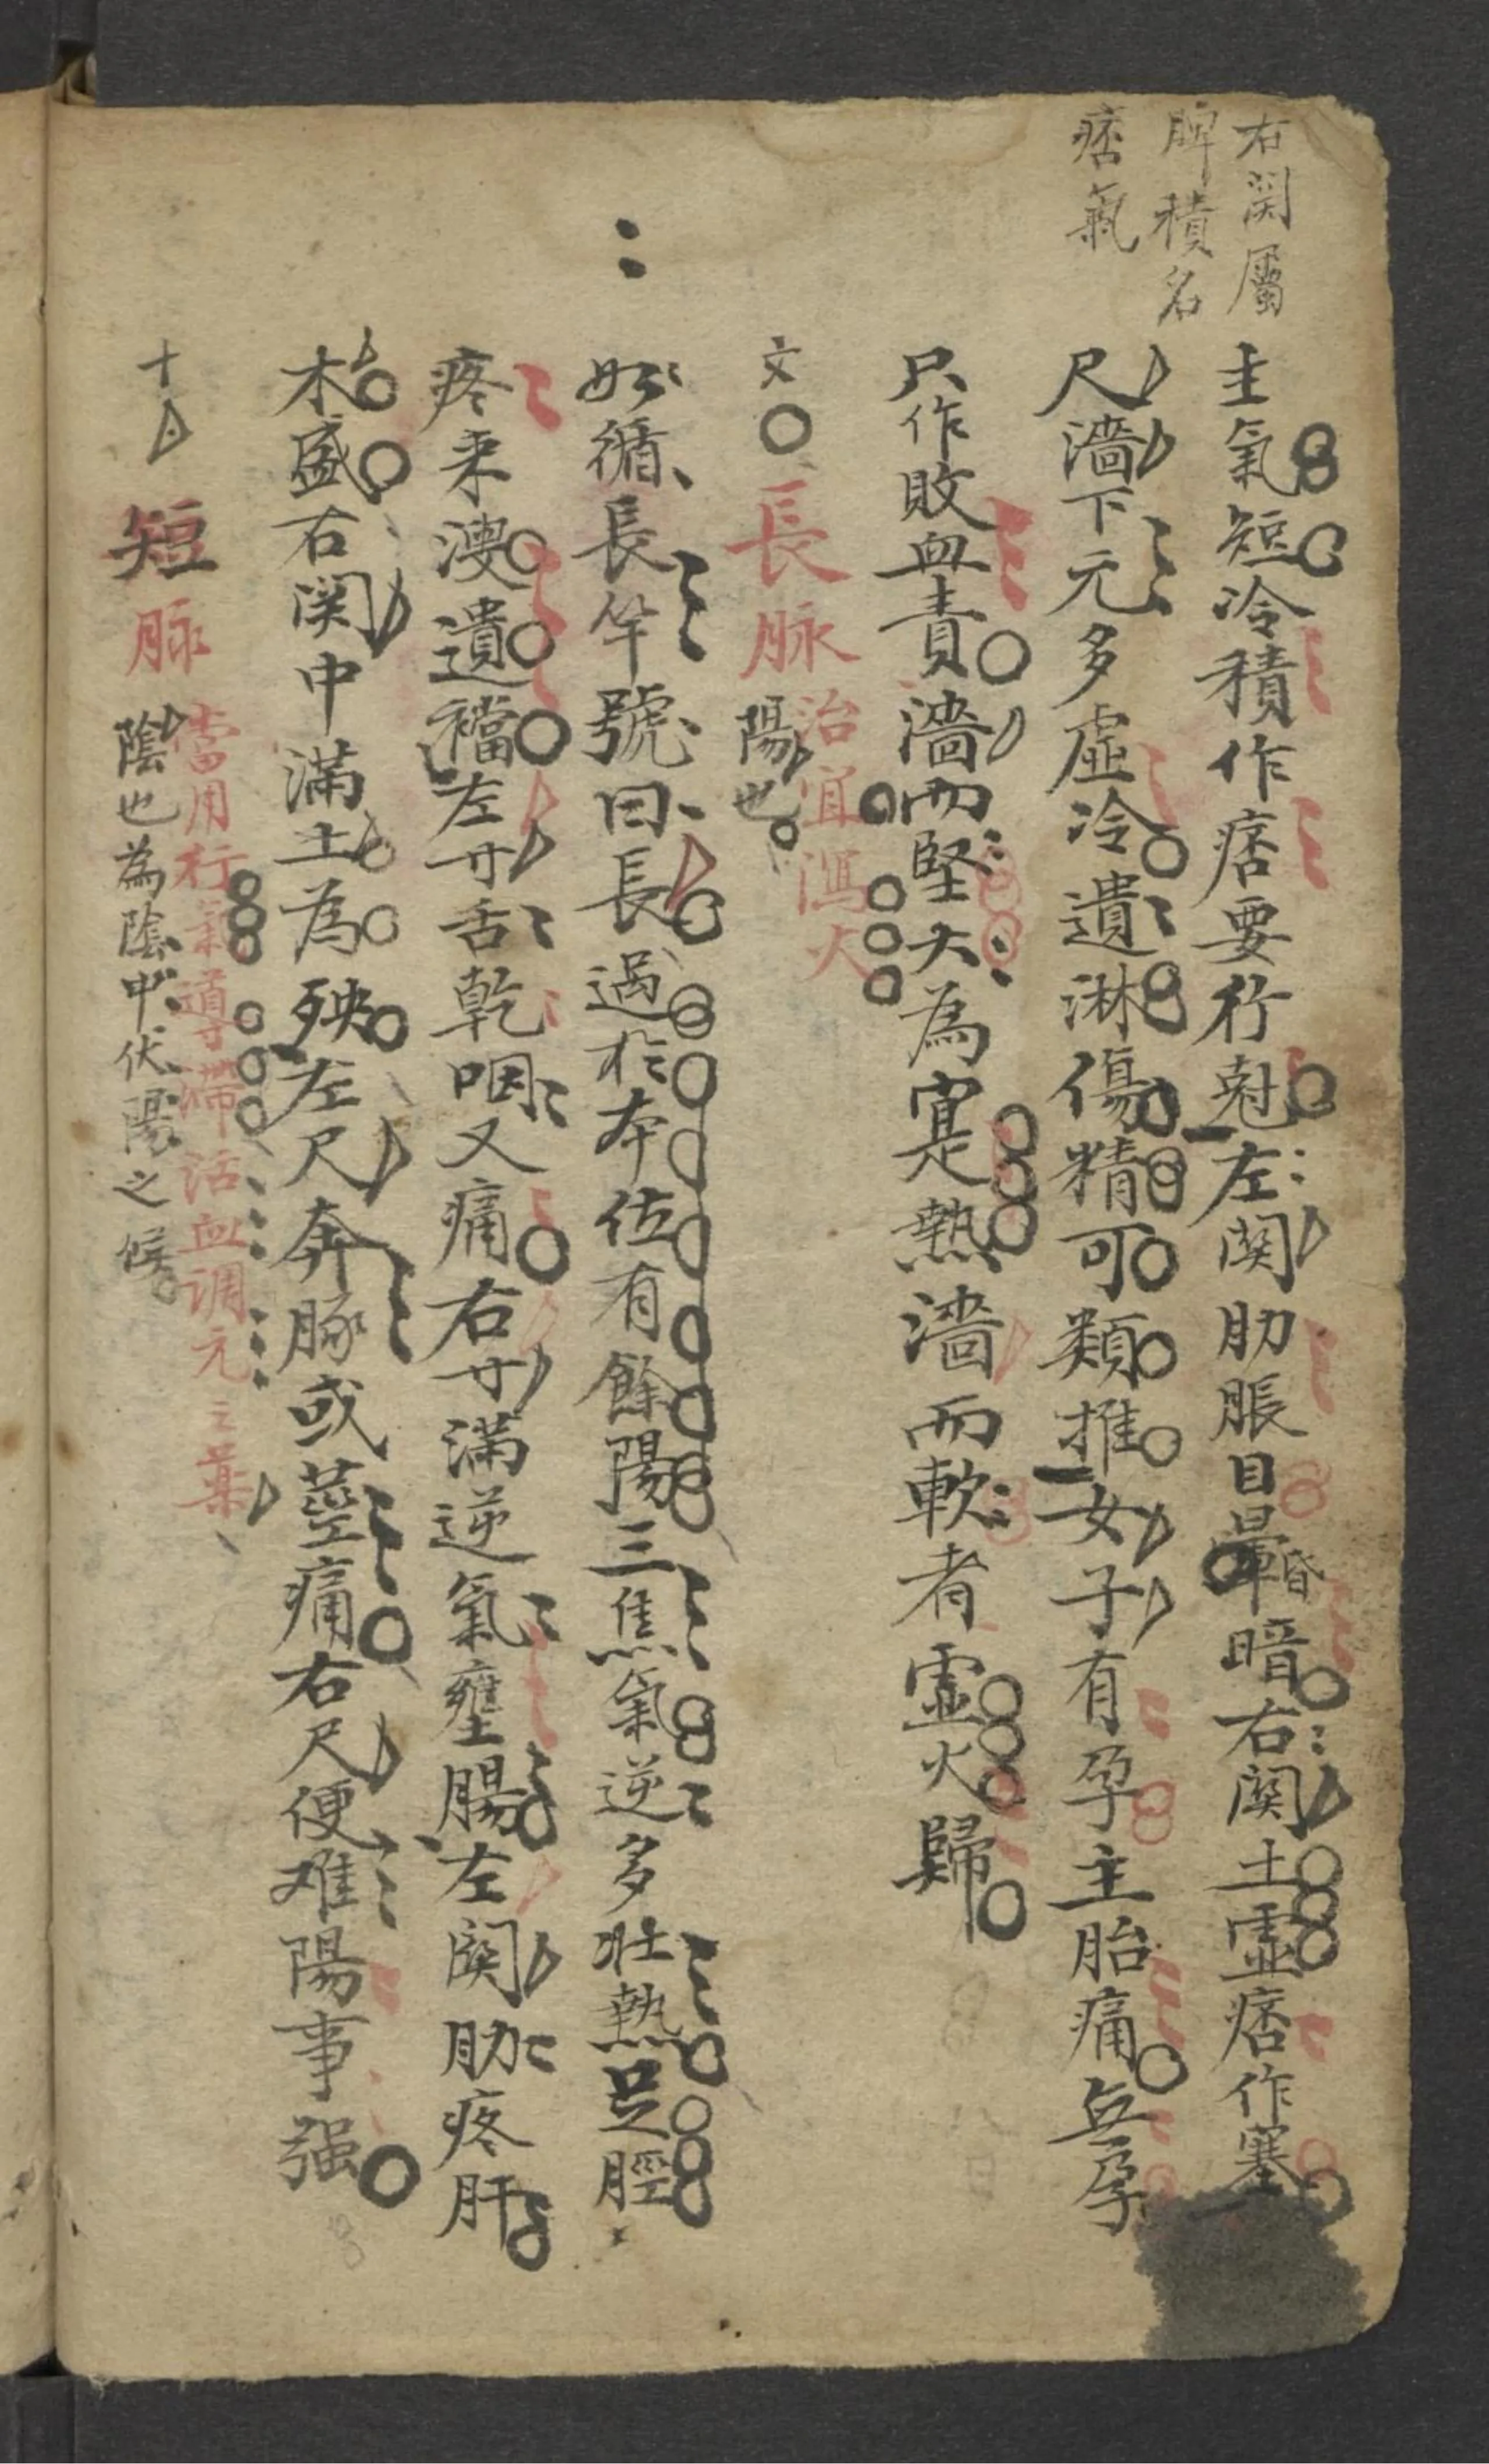 右関屬
脾積名
痞氣
主氣短冷積作痞要行尅左関肋脹目暈昏暗右関土虛痞作塞
尺濇下元多虛冷遺淋傷精可類推女子有孕主胎痛無孕
只作敗血責濇而堅大為寔熱濇而軟者虛火歸
文
長脉
治宜瀉火
陽也
如循長竿號曰長過於本位有餘陽三焦氣逆多壯熱足脛
疼来溲遺襠左寸舌乾咽又痛右寸滿逆氣壅腸左関肋疼肝
木盛右関中滿土為殃左尺奔豚或莖痛右尺便难陽事强
十
短脉
當用行氣導滯活血调元之薬
陰也為陰中伏陽之候